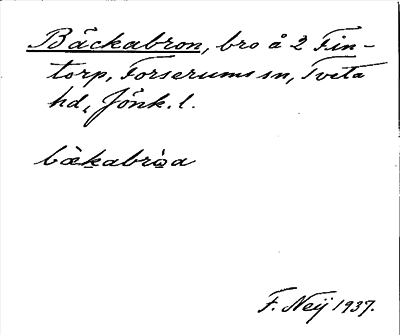 Bäckabron, bro å 2 Fin-
torp, Forserums sn, Tveta
hd, Jönk. l.
bäkabròa
F. Neij 1937.